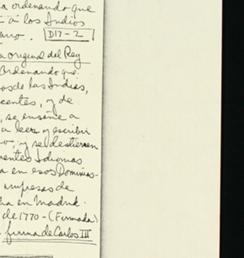 a ordenando que
a los Indios
D17-2
a original del Rey
Ordenando que
os de las Indias,
centes, y de
, se enseñe a
a leer y escribir
o, y se destierren
rentes Idiomas
a en esos Dominios-
impresas de
ha en Madrid
de 1770 - (Firmada)
firma de Carlos III